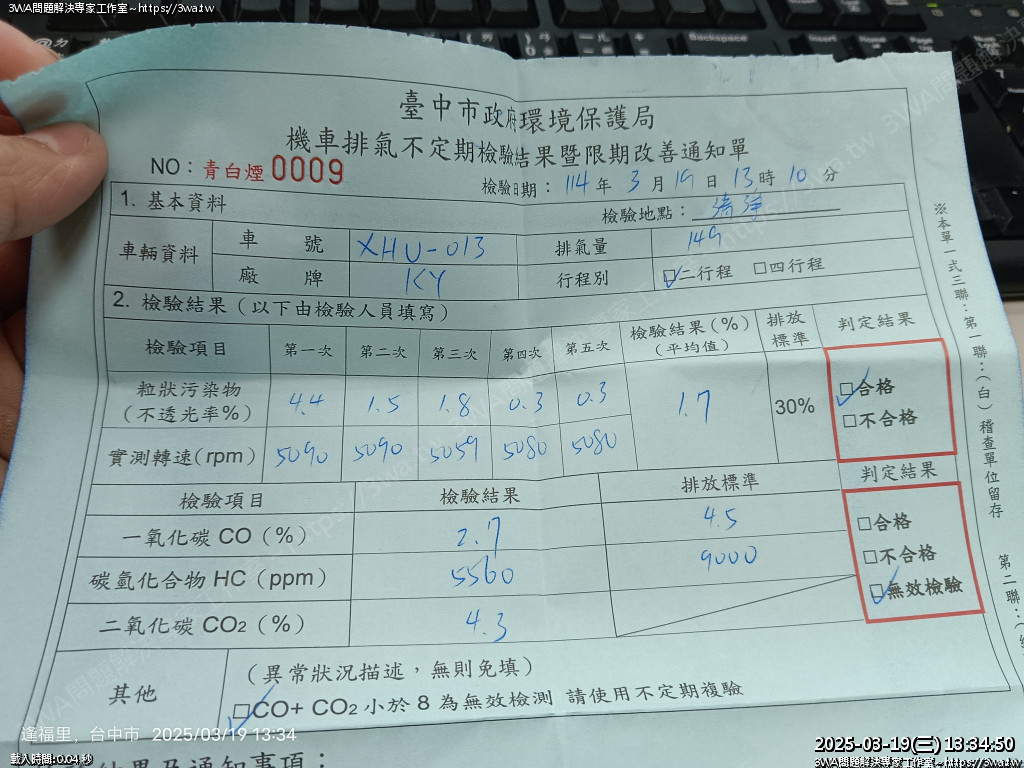 3WA問題解決專家工作室~https://3wa.tw
臺中市政府環境保護局
機車排氣不定期檢驗結果暨限期改善通知單
NO：青白煙0009
檢驗日期：114年3月19日13時10分
1. 基本資料
檢驗地點：
車輛資料
車號 XHU-013 排氣量 149
廠牌 KY 行程別 ☑二行程 □四行程
2. 檢驗結果（以下由檢驗人員填寫）
檢驗項目 第一次 第二次 第三次 第四次 第五次 檢驗結果(%)（平均值） 排放標準 判定結果
粒狀污染物（不透光率%） 4.4 1.5 1.8 0.3 0.3 1.7 30% ☑合格
□不合格
實測轉速(rpm) 5090 5090 5059 5080 5080
檢驗項目 檢驗結果 排放標準 判定結果
一氧化碳 CO（%） 2.7 4.5 □合格
碳氫化合物 HC（ppm） 5560 9000 □不合格
二氧化碳 CO2（%） 4.3 ☑無效檢驗
其他
（異常狀況描述，無則免填）
☑CO+ CO2 小於 8 為無效檢測 請使用不定期複驗
結果及通知事項：
※本單一式三聯：第一聯：（白）稽查單位留存
第二聯：（
逢福里，台中市 2025/03/19 13:34
載入時間：0.04 秒
2025-03-19(三) 13:34:50
3WA問題解決專家工作室~https://3wa.tw